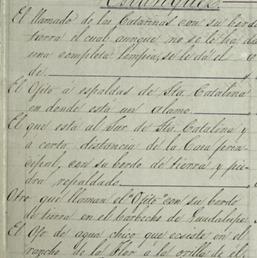 Estanques.
El llamado de las Catarinas con su bordo
tierra el cual aunque no se le ha da
una completa limpia, se le da el
de
El Ojito a espaldas de Sta. Catalina
en donde está un alamo
El que está al Sur de Sta. Catalina y
a corta distancia de la Casa prin-
cipal, con su bordo de tierra y pie-
dra respaldado
Otro que llaman el "Ojito" con su bordo
de tierra en el Barbecho de Guadalupe
El Ojo de agua chico que ecsiste en el
rancho de la Flor a la orilla de el